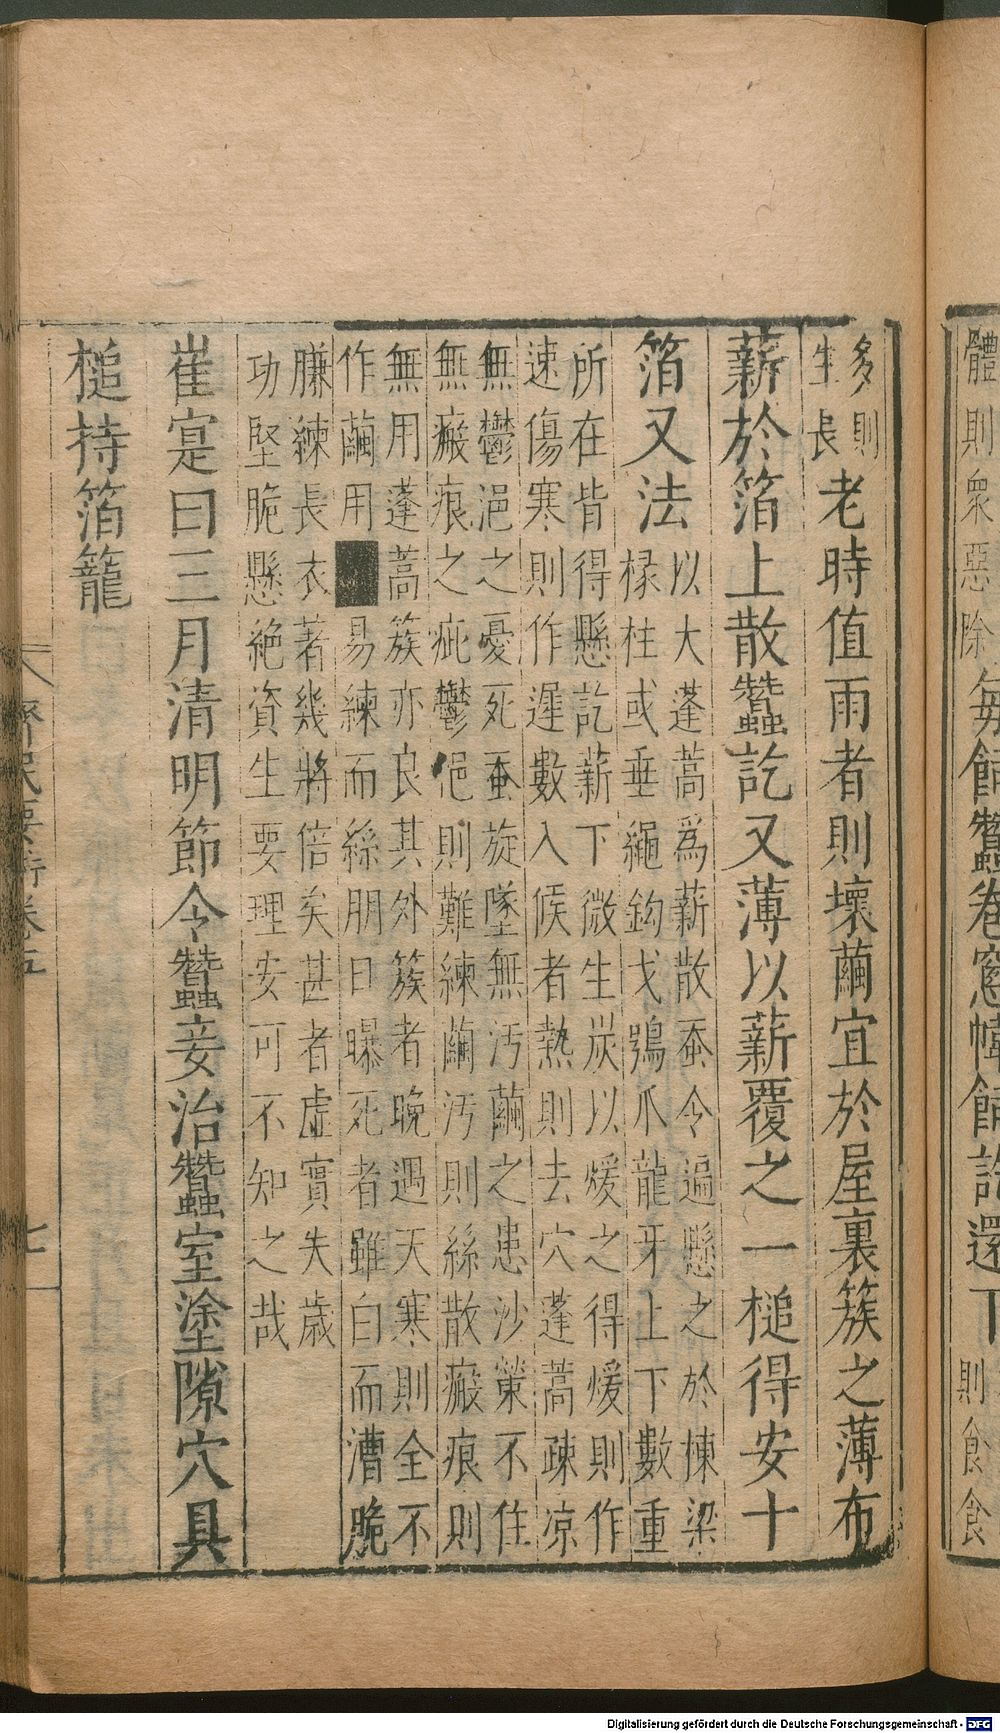 體則衆惡除每飼蠶卷窓幃飼訖還下則食食
多則
生長
老時值雨者則壞繭宜於屋裏簇之薄布
薪於箔上散蠶訖又薄以薪覆之一槌得安十
箔又法
以大蓬蒿爲薪散蚕令遍懸之於棟梁
椽柱或垂繩鈎戈鶚爪龍牙上下數重
所在皆得懸訖薪下微生炭以煖之得煖則作
速傷寒則作遲數入候者熱則去穴蓬蒿疎凉
無鬱浥之憂死蚕旋墜無汚繭之患沙䇿不住
無瘢痕之疵鬱浥則難練繭汚則絲散瘢痕則
無用蓬蒿簇亦良其外簇者晚遇天寒則全不
作繭用易練而絲朋日曝死者雖白而漕脆
膁練長衣著幾將倍矣甚者虛實失歳
功堅脆懸絶資生要理安可不知之哉
崔寔曰三月清明節令蠶妾治蠶室塗隙穴具
槌持箔籠
齊民要術卷五
七
Digitalisierung gefördert durch die Deutsche Forschungsgemeinschaft - DFG